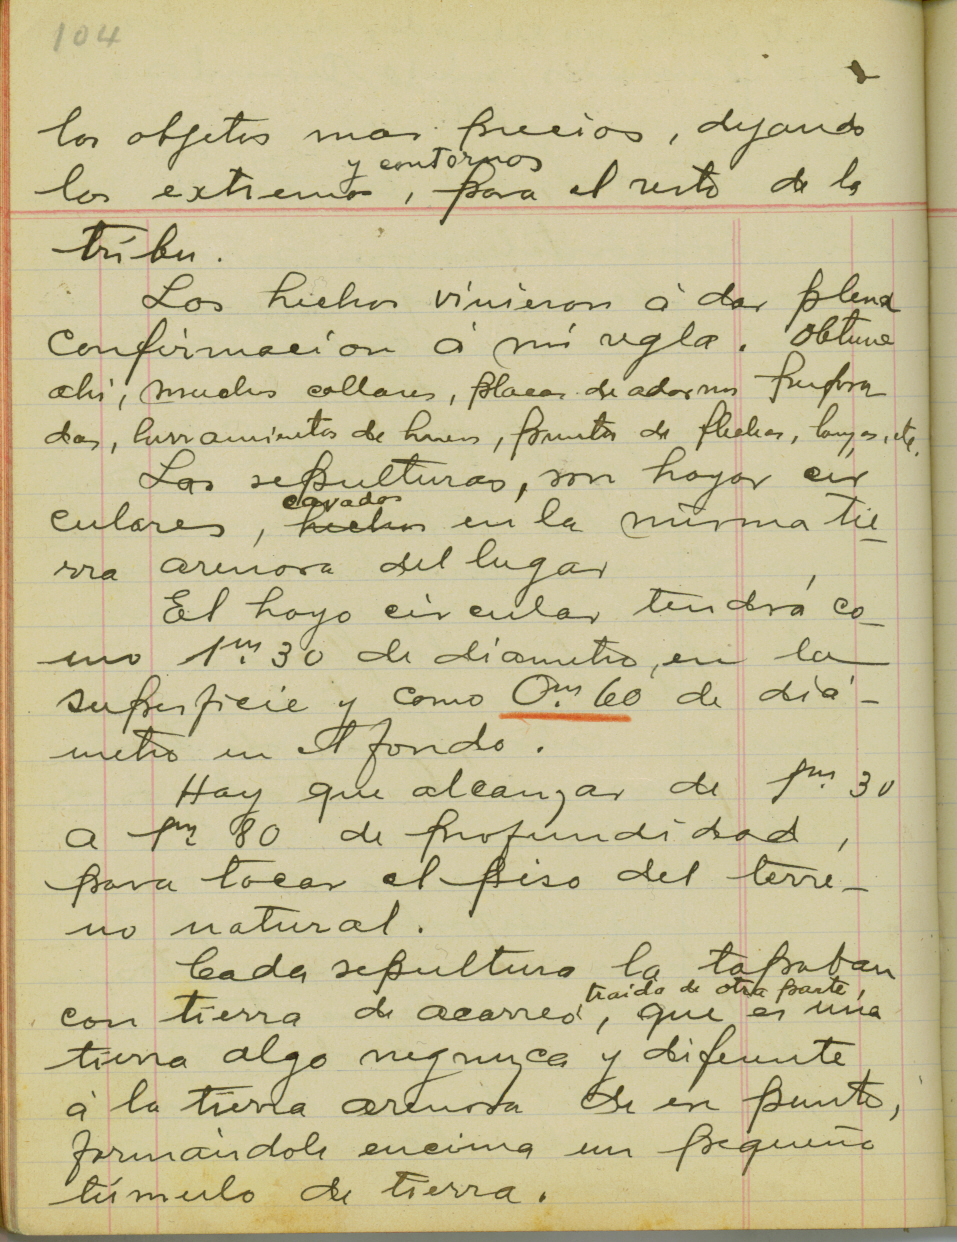 104
los objetos mas precios, dejando
y contornos
los extremos, para el resto de la
tribu.
Los hechos vinieron á dar plena
confirmacion á mi regla. Obtuve
ahi, muchos collares, placas de adornos perfora
das, herramientas de hueso, puntas de flechas, lanzas, etc.
Las sepulturas, son hoyos cir
cavados
culares, hechos en la misma tie_
rra arenosa del lugar
El hoyo circular tendrá co_
mo 1m. 30 de diametro, en la
superficie y como 0m. 60 de diá_
metro en el fondo.
Hay que alcanzar de 1m. 30
a 1m 80 de profundidad,
para tocar el piso del terre_
no natural.
Cada sepultura la tapaban
traida de otra parte,
con tierra de acarreo, que es una
tierra algo negruzca y diferente
á la tierra arenosa de en punto,
formándole encima un pequeño
túmulo de tierra.